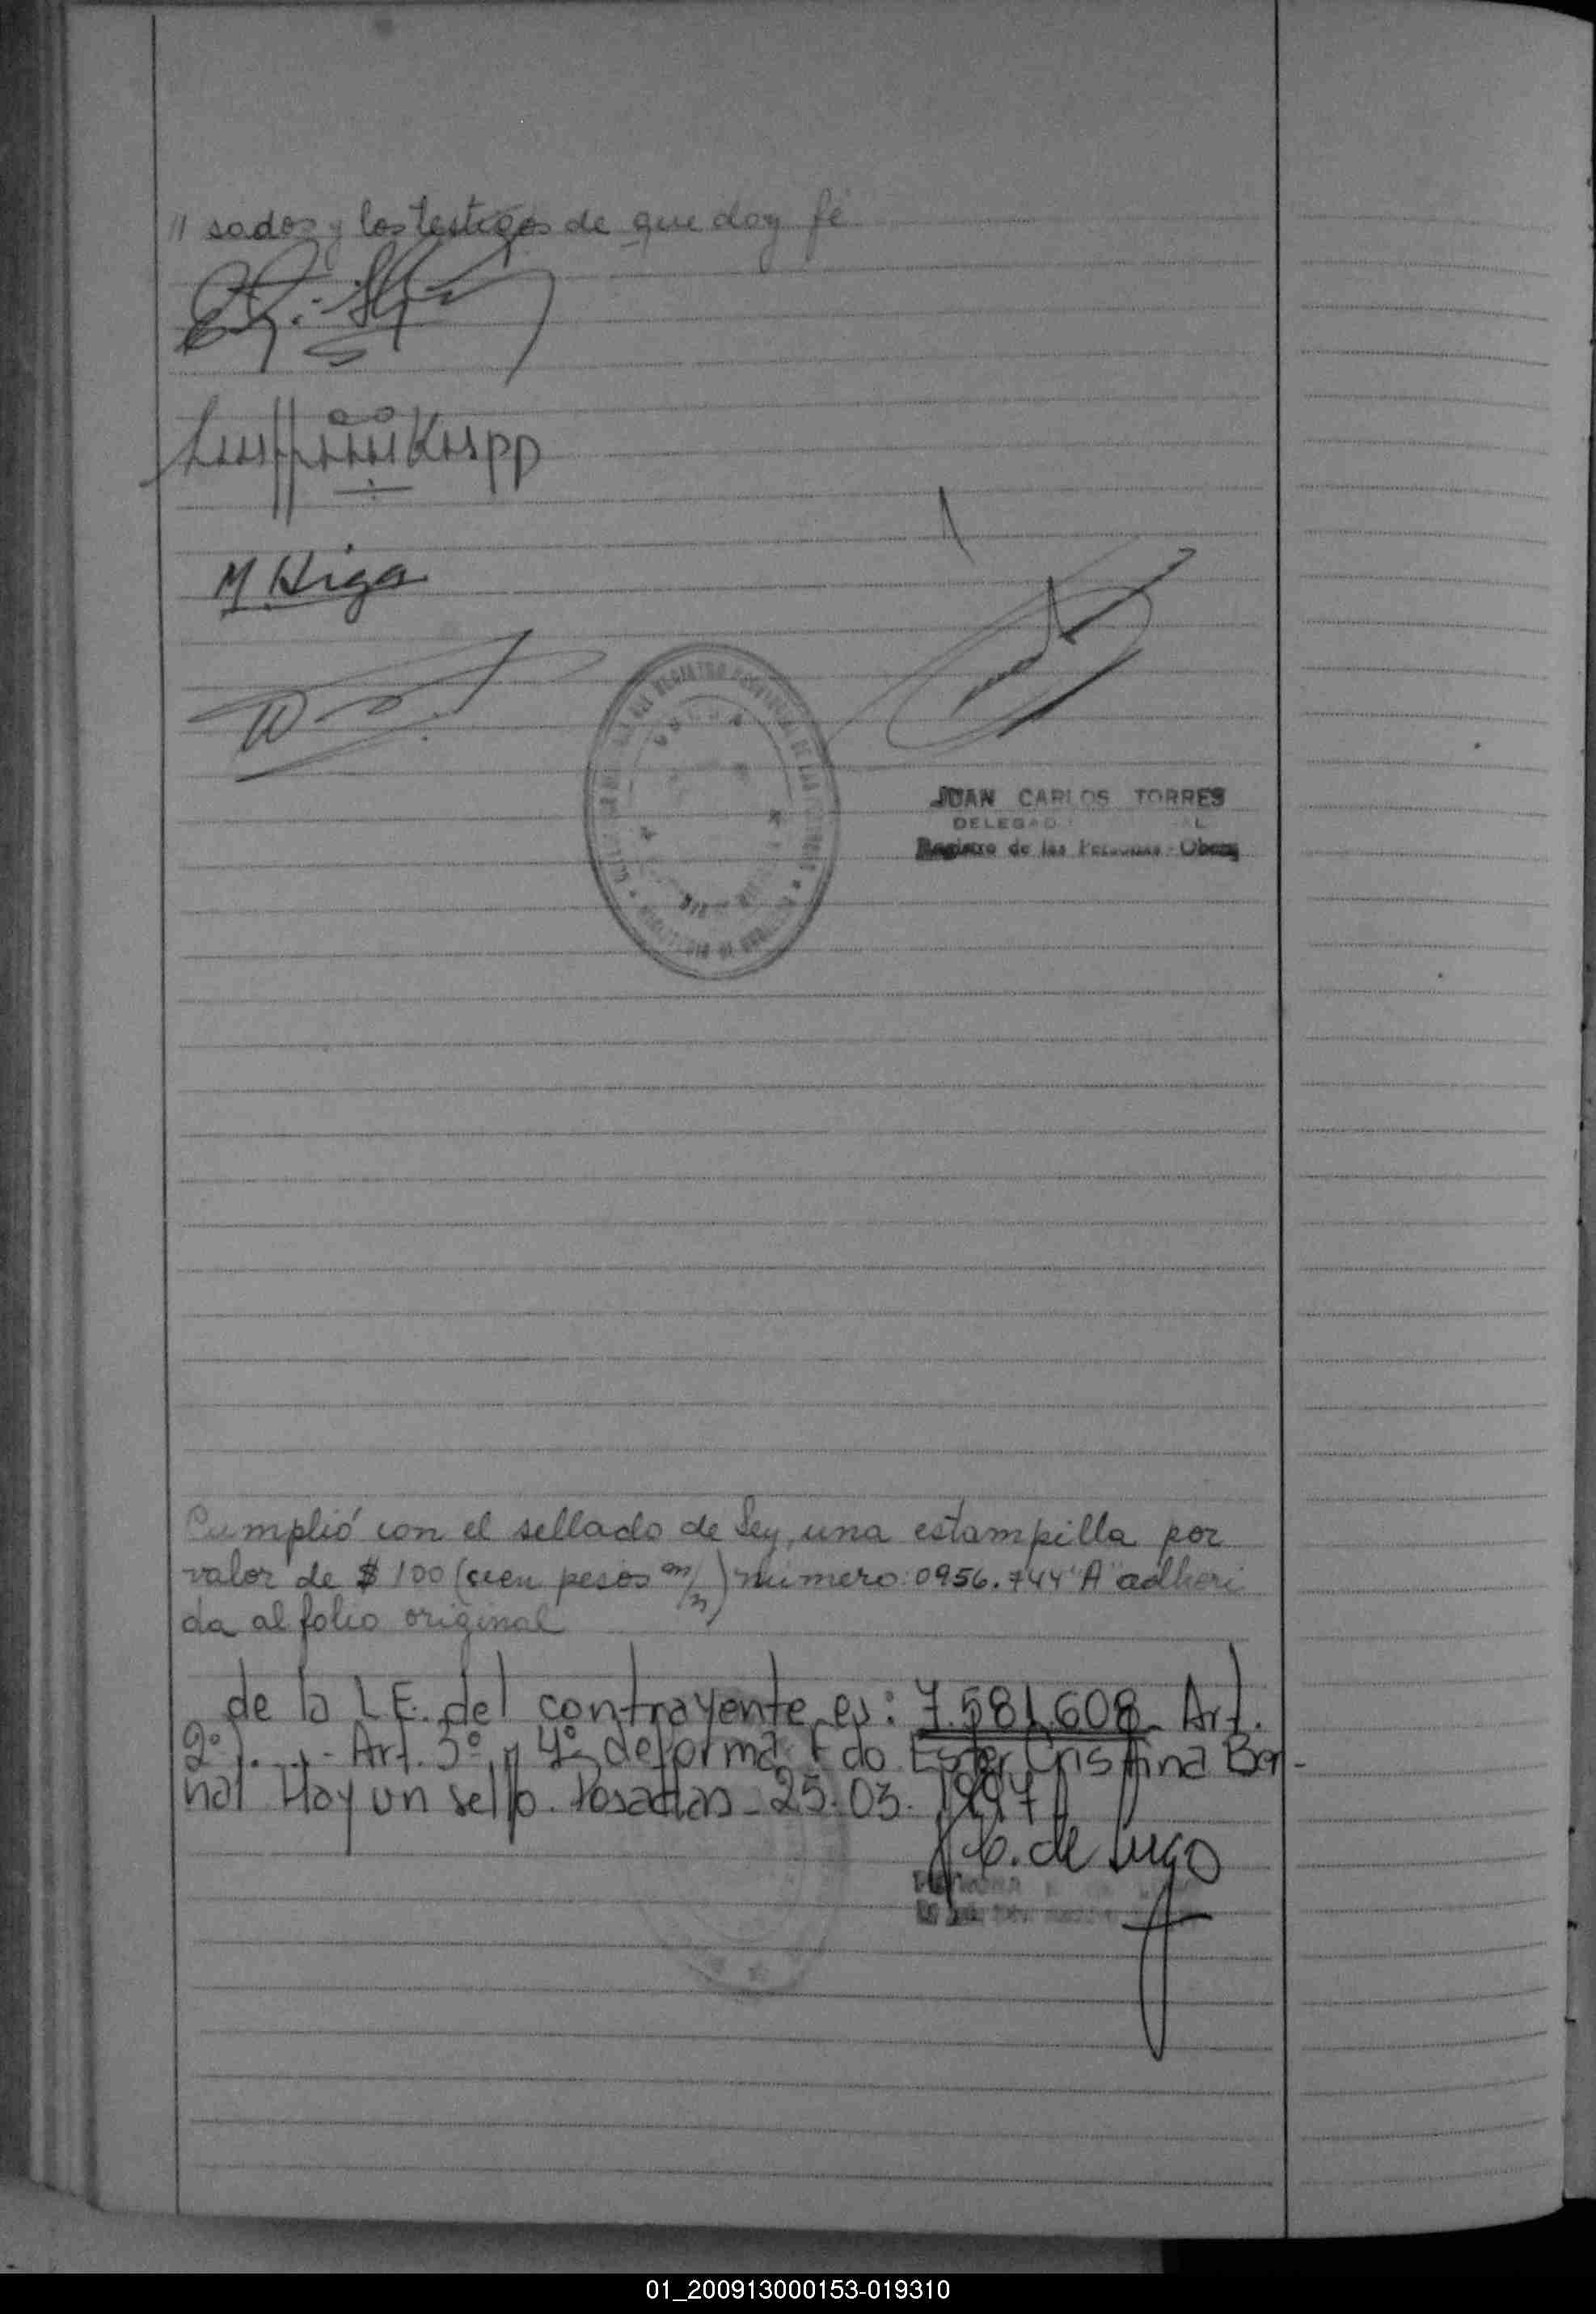 // sados y los testigos de que doy fé
Krupp
M. Higa
JUAN CARLOS TORRES
DELEGADO
Registro de las Personas - Obera
Cumplió con el sellado de Ley, una estampilla por
valor de $ 100 (cien pesos m/n) número: 0956.744 "A" adheri
da al folio original
de la L.E. del contrayente es: 7.581.608 - Art.
2º)....- Art. 3º y 4º de forma. Fdo. Ester Cristina Ber-
nal. Hay un sello. Posadas - 25.03.1997
de Lugo
01_200913000153-019310